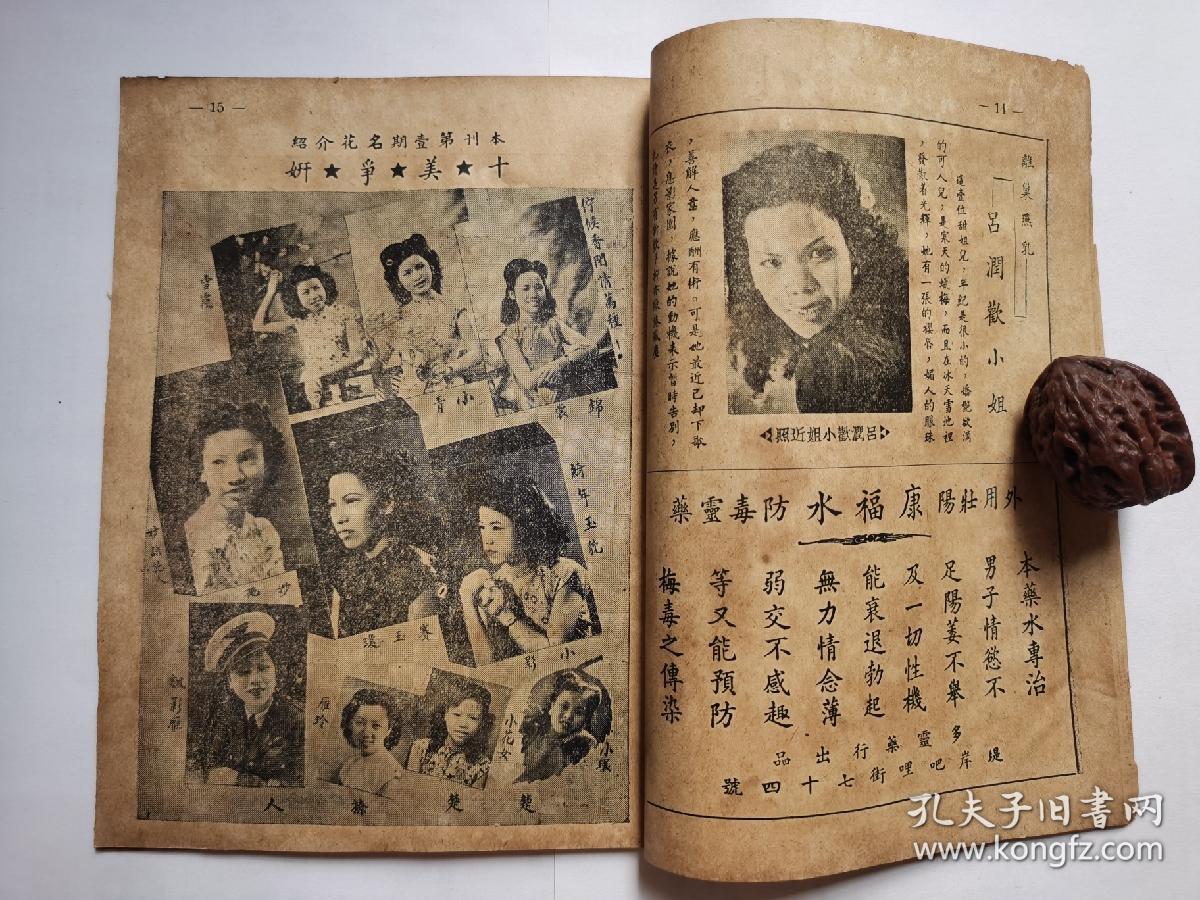 — 14 —
離巢燕乳
呂潤歡小姐
這壹位甜姐兒，年紀是很小的，
的可人兒，是寒天的
，發散着光輝，她有一張的櫻唇，媚人的眼珠
，善解人意，應酬有術。可是她最近已却下歌
衣，應影家園，據說她的動機表示暫時告別，
呂潤歡小姐近照
外用壯陽康福水防毒靈藥
本藥水專治
男子情慾不
足陽萎不舉
及一切性機
能衰退勃起
無力情念薄
弱交不感趣
等又能預防
梅毒之傳染
多靈藥行出品
堤岸吧哩街七十四號
— 15 —
本刊第壹期名花介紹
十★美★爭★妍
佇候香閨情萬種！
雪霞
小青
錦雲
妙齡年玉貌
妙花
賽玉環
小影
飄影
雁玲
小花女
小嬡
楚楚撩人
孔夫子旧书网
www.kongfz.com